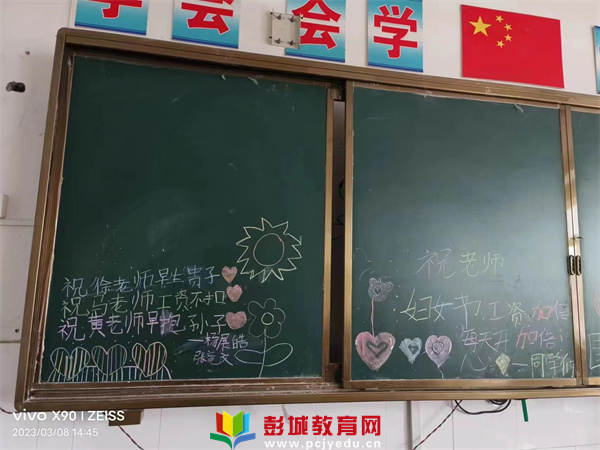 学会 会学
祝徐老师早生贵子
祝马老师工资不扣
祝黄老师早抱孙子
杨展皓
祝老师
妇女节,工资加倍
每天开加倍
心
一同学们
vivo X90 | ZEISS
2023/03/08 14:45
彭城教育网
www.pcjyedu.cn